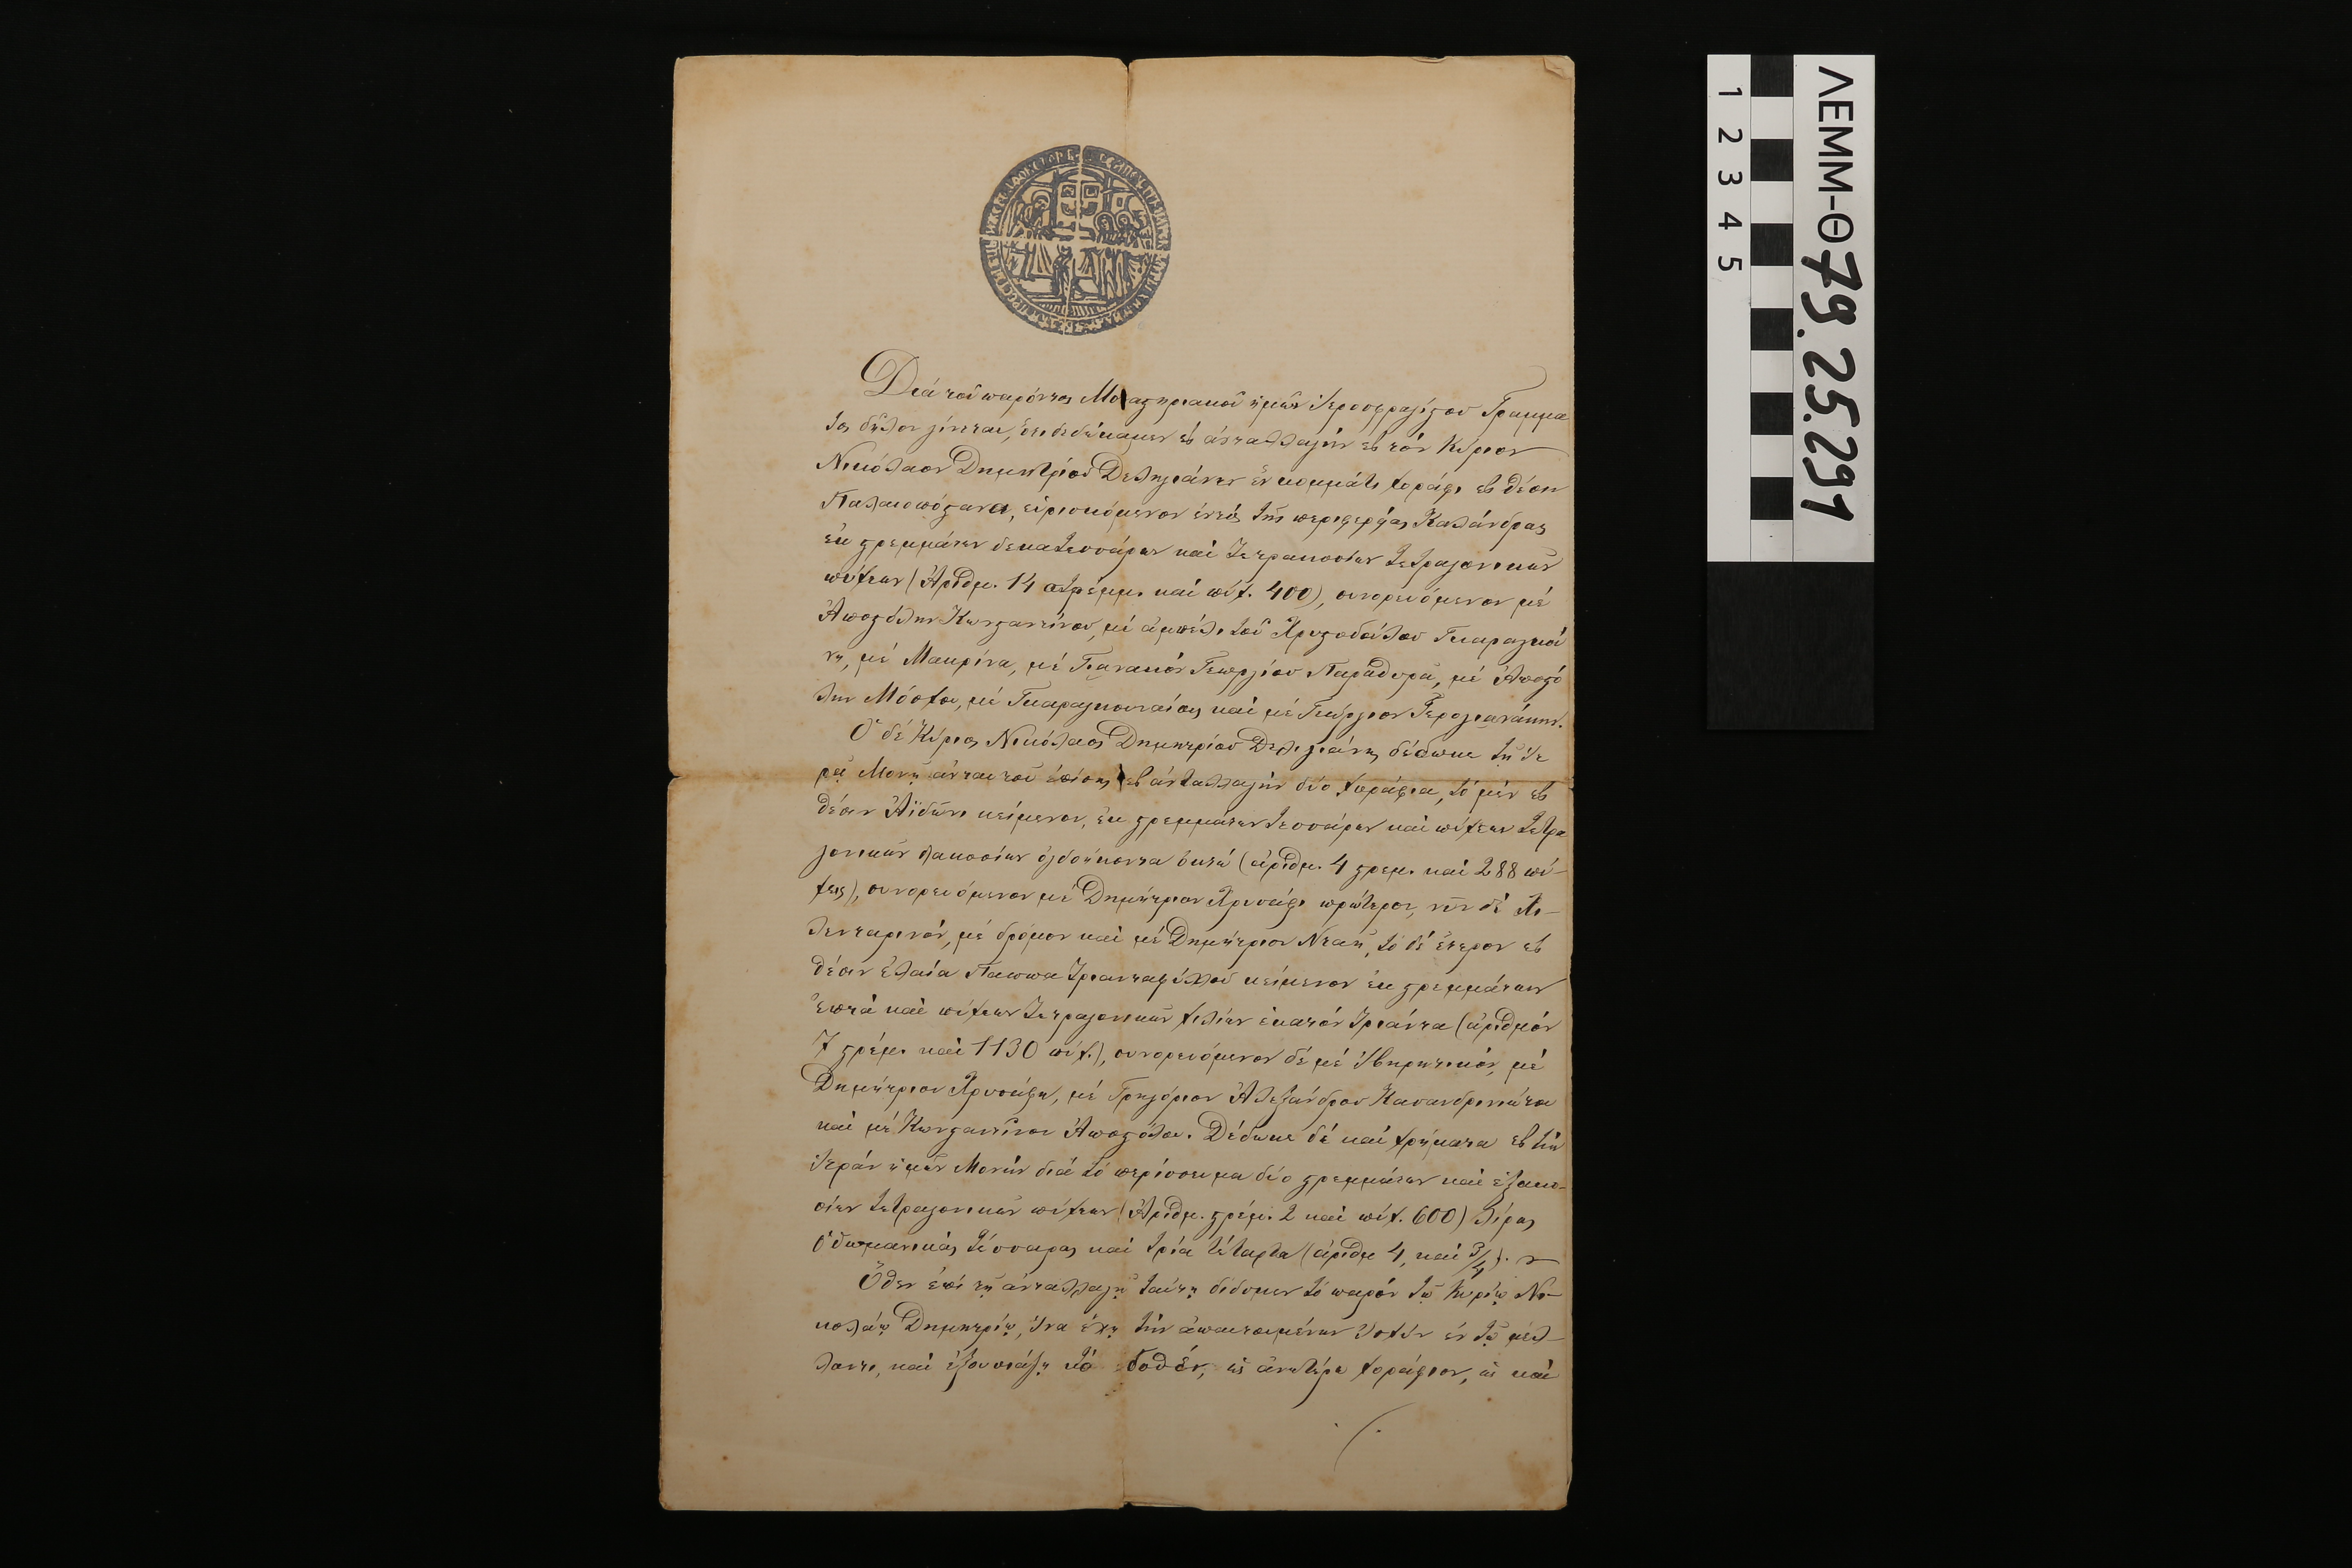 Διά τοῦ παρόντος Μοναστηριακοῦ ἡμῶν Ἱεροσφραγίστου Γράμμα
τος δῆλον γίνεται, ὅτι δεδώκαμεν εἰς ἀνταλλαγήν εἰς τόν Κύριον
Νικόλαον Δημητρίου Δεληγιάνην ἕν κομμάτι χωράφι εἰς θέσιν
εὑρισκόμενον ἐντός τῆς περιφερείας Καλάνδρας
ἐκ στρεμμάτων δεκατεσσάρων καί τετρακοσίων τετραγωνικῶν
πήχεων (Ἀριθμ. 14 στρέμμ. καί πήχ. 400), συνορευόμενον μέ
Ἀποστόλην Κωνσταντίνου, μέ ἀμπέλι τοῦ Χρυστοδούλου Γκαραγκιά
νη, μέ Μακρίνα, μέ Γιανακόν Γεωργίου Παράθυρα, μέ Ἀποστό
λην Μόσχου, μέ καί μέ Γεώργιον Γερογιανάκην.
Ὁ δέ Κύριος Νικόλαος Δημητρίου Δεληγιάνης δέδωκε τῇ Ἱε
ρᾷ Μονῇ ἀνταυτοῦ ἐπίσης εἰς ἀνταλλαγήν δύο χωράφια, τό μέν εἰς
θέσιν Ἀϊδῶνι κείμενον, ἐκ στρεμμάτων τεσσάρων καί πήχεων τετρα
γωνικῶν διακοσίων ὀγδοήκοντα ὀκτώ (ἀριθμ. 4 στρεμ. καί 288 πή-
χεις), συνορευόμενον μέ Δημήτριον Χρυσάφι πρώτερον, νῦν δέ
μέ δρόμον καί μέ Δημήτριον τό δέ ἕτερον εἰς
θέσιν ἐλαία Παππα Τριανταφύλλου κείμενον ἐκ στρεμμάτων
ἑπτά καί πήχεων τετραγωνικῶν χιλίων ἑκατόν τριάντα (ἀριθμόν
7 στρέμ. καί 1130 πήχ.), συνορευόμενον δέ μέ Ἰβηρητικόν, μέ
Δημήτριον Χρυσάφην, μέ Γρηγόριον Ἀλεξάνδρου Κασανδρινιώτου
καί μέ Κωνσταντῖνον Ἀποστόλου. Δέδωκε δέ καί χρήματα εἰς τήν
Ἱεράν ἡμῶν Μονήν διά τό περίσσευμα δύο στρεμμάτων καί ἑξακο-
σίων τετραγωνικῶν πήχεων (Ἀριθμ. στρέμ. 2 καί πήχ. 600) λίρας
Ὀθωμανικάς τέσσαρας καί τρία τέταρτα (ἀριθμ 4, καί 3/4).
Ὅθεν ἐπί τῇ ἀνταλλαγῇ ταύτῃ δίδομεν τό παρόν τῷ Κυρίῳ Νι-
κολάῳ Δημητρίῳ, ἵνα ἔχῃ τήν ἀπαιτουμένην ἰσχύν ἐν τῷ μέλ-
λοντι, καί ἐξουσιάζῃ τό δοθέν, ὡς ἀνωτέρω χωράφιον, ὡς καί
ΛΕΜΜ-Θ79.25.291
1 2 3 4 5